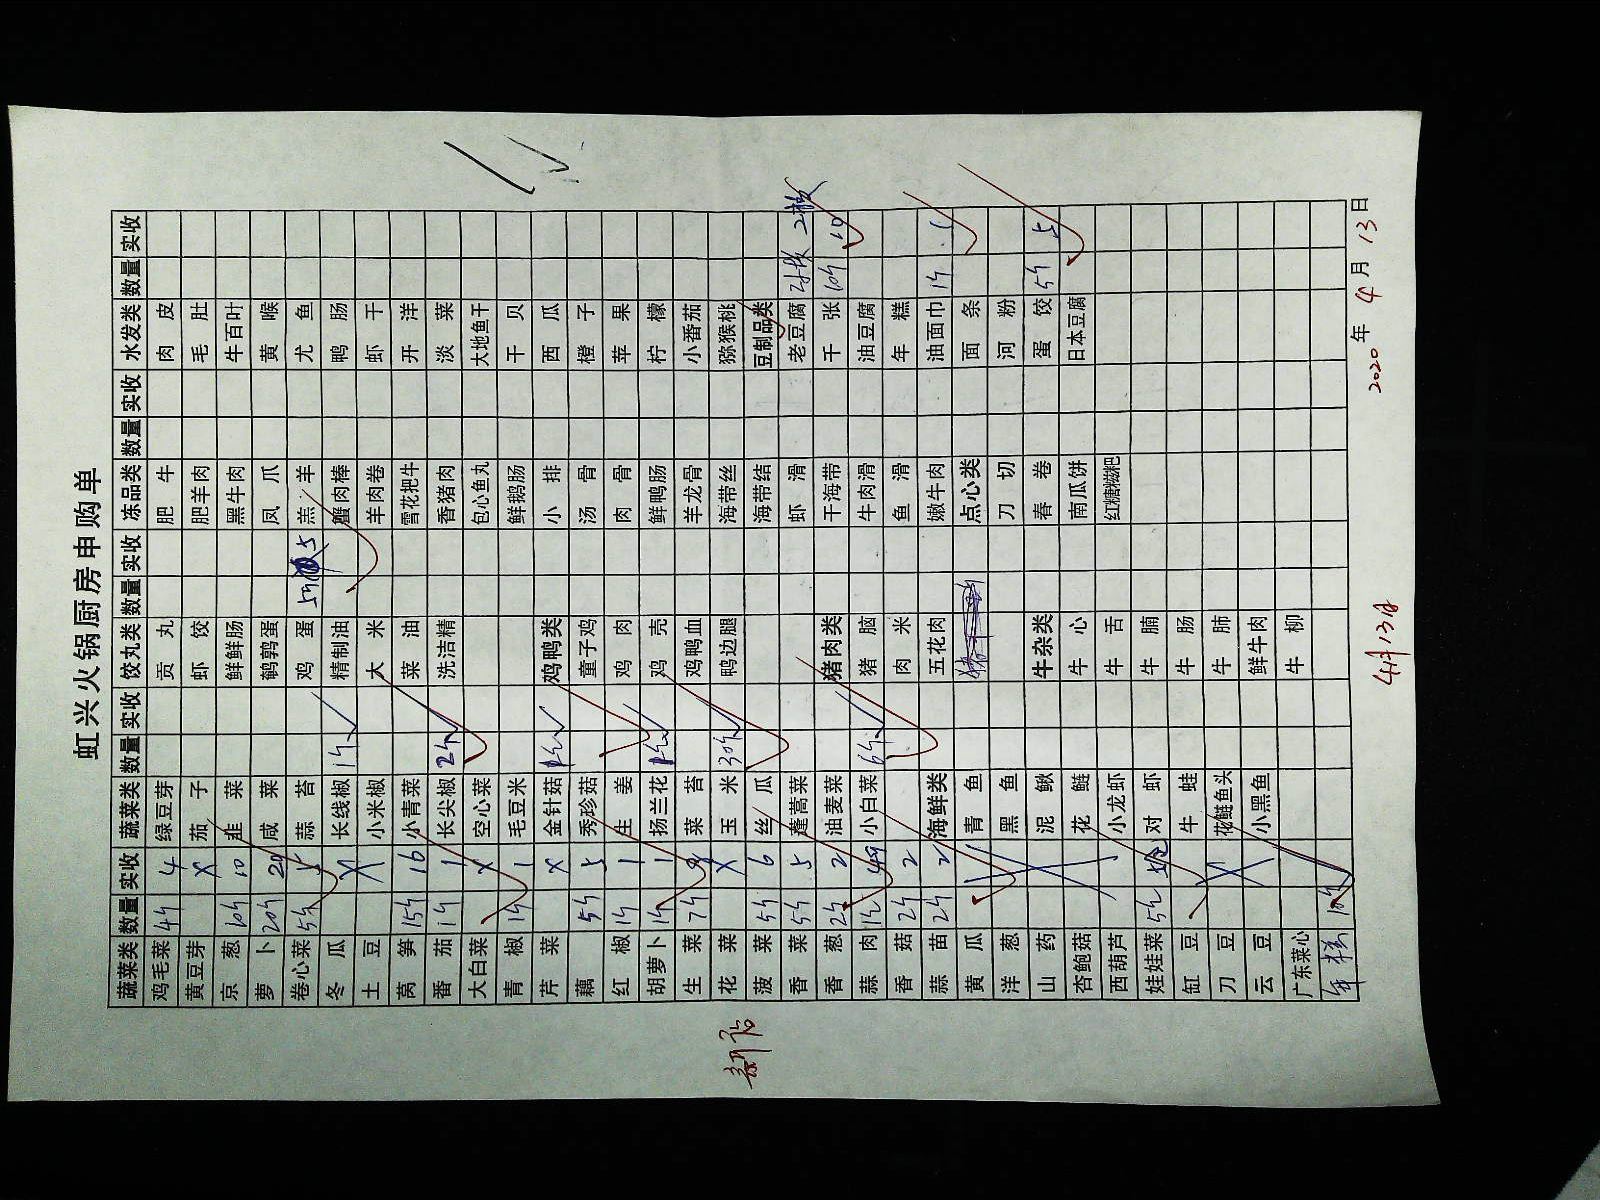 虹兴火锅厨房申购单
蔬菜类 数量 实收 蔬菜类 数量 实收 饺丸类 数量 实收 冻品类 数量 实收 水发类 数量 实收
鸡毛菜 4斤 4 绿豆芽 贡丸 肥牛 肉皮
黄豆芽 X 茄子 虾饺 肥羊肉 毛肚
京葱 10斤 10 韭菜 鲜鲜肠 黑牛肉 牛百叶
萝卜 20斤 20 咸菜 鹌鹑蛋 凤爪 黄喉
卷心菜 5斤 5 蒜苔 鸡蛋 5斤 5 羔羊 尤鱼
冬瓜 长线椒 1斤 精制油 蟹肉棒 鸭肠
土豆 X 小米椒 大米 羊肉卷 虾干
莴笋 15斤 16 小青菜 菜油 雪花把牛 开洋
番茄 1斤 1 长尖椒 2斤 洗洁精 香猪肉 淡菜
大白菜 X 空心菜 包心鱼丸 大地鱼干
青椒 1斤 1 毛豆米 鲜鹅肠 干贝
芹菜 X 金针菇 鸡鸭类 小排 西瓜
藕 5斤 5 秀珍菇 童子鸡 汤骨 橙子
红椒 1斤 1 生姜 鸡肉 肉骨 苹果
胡萝卜 1斤 1 扬兰花 鸡壳 鲜鸭肠 柠檬
生菜 7斤 菜苔 鸡鸭血 羊龙骨 小番茄
花菜 X 玉米 30斤 鸭边腿 海带丝 猕猴桃
菠菜 5斤 6 丝瓜 海带结 豆制品类
香菜 5斤 5 蓬蒿菜 虾滑 老豆腐 2板 2板
香葱 2斤 2 油麦菜 猪肉类 干海带 千张 10斤 10
蒜肉 1斤 小白菜 6斤 猪脑 牛肉滑 油豆腐
香菇 2斤 2 肉米 鱼滑 年糕
蒜苗 2斤 2 海鲜类 五花肉 嫩牛肉 油面巾 1斤
黄瓜 青鱼 点心类 面条
洋葱 黑鱼 刀切 河粉
山药 泥鳅 牛杂类 春卷 蛋饺 5斤 5
杏鲍菇 花鲢 牛心 南瓜饼 日本豆腐
西葫芦 小龙虾 牛舌 红糖糍粑
娃娃菜 5斤 对虾 牛腩
缸豆 牛蛙 牛肠
刀豆 花鲢鱼头 牛肺
云豆 小黑鱼 鲜牛肉
广东菜心 牛柳
年糕 10斤
2020年4月13日
4月13日